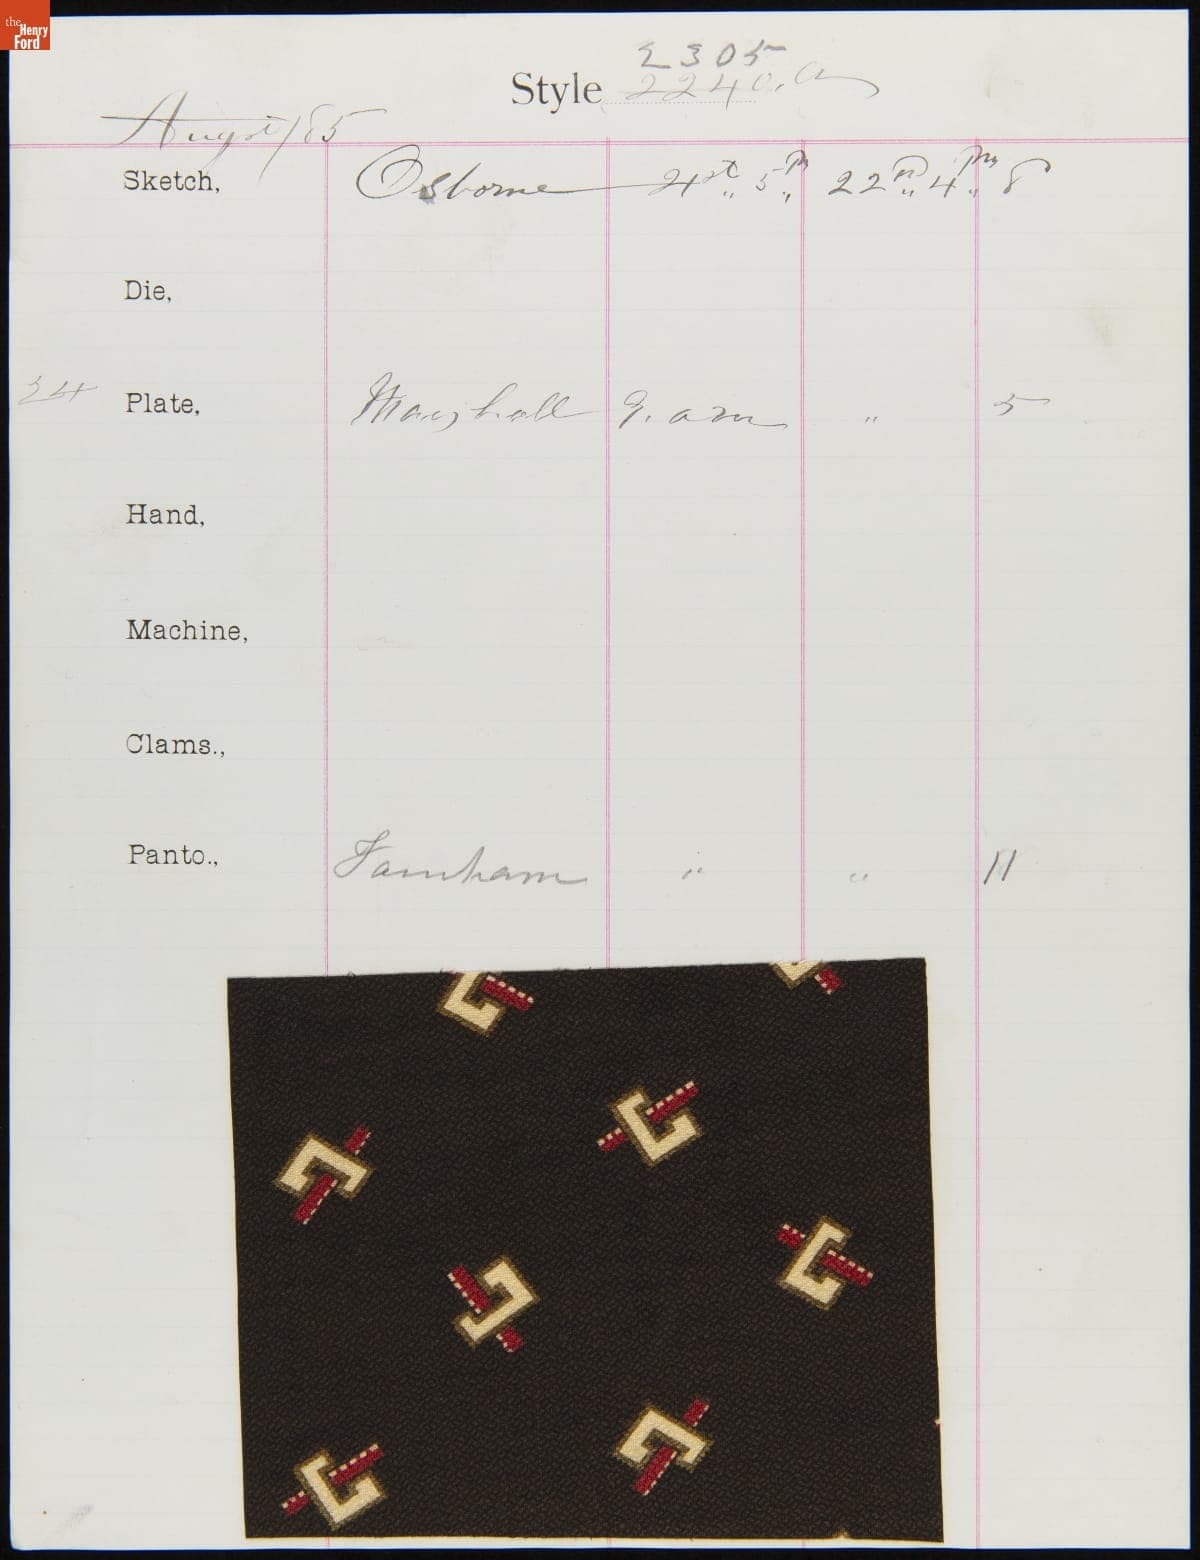 the Henry Ford
2305
Style 2240. a
August/85
Sketch, Osborne 21st " 5 " Pm 22nd " 4 " Pm 8
Die,
24 Plate, Marshall " 5
Hand,
Machine,
Clams.,
Panto., Farnham " " 11